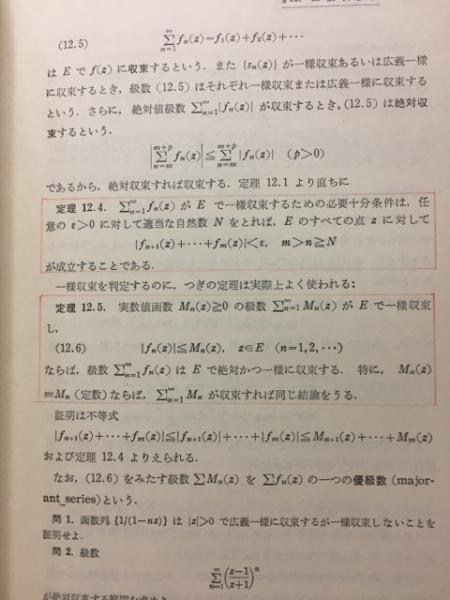 (12.5) $\sum_{n=1}^{\infty} f_n(z)=f_1(z)+f_2(z)+\cdots$
は E で f(z) に収束するという．また {s_n(z)} が一様収束あるいは広義一様
に収束するとき，級数 (12.5) はそれぞれ一様収束または広義一様に収束する
という．さらに，絶対値級数 $\sum_{n=1}^{\infty}|f_n(z)|$ が収束するとき，(12.5) は絶対収
束するという．
$\left|\sum_{n=m}^{m+p} f_n(z)\right| \leqq \sum_{n=m}^{m+p} |f_n(z)| \quad (p>0)$
であるから，絶対収束すれば収束する．定理 12.1 より直ちに
定理 12.4. $\sum_{n=1}^{\infty} f_n(z)$ が E で一様収束するための必要十分条件は，任
意の ε>0 に対して適当な自然数 N をとれば，E のすべての点 z に対して
$|f_{n+1}(z)+\cdots+f_m(z)|<ε, \quad m>n\geqq N$
が成立することである．
一様収束を判定するのに，つぎの定理は実際上よく使われる：
定理 12.5. 実数値函数 $M_n(z)\geqq 0$ の級数 $\sum_{n=1}^{\infty} M_n(z)$ が E で一様収束
し，
(12.6) $|f_n(z)|\leqq M_n(z), \quad z\in E \quad (n=1,2,\cdots)$
ならば，級数 $\sum_{n=1}^{\infty} f_n(z)$ は E で絶対かつ一様に収束する．特に，$M_n(z)$
$\equiv M_n$ (定数) ならば，$\sum_{n=1}^{\infty} M_n$ が収束すれば同じ結論をうる．
証明は不等式
$|f_{n+1}(z)+\cdots+f_m(z)|\leqq|f_{n+1}(z)|+\cdots+|f_m(z)|\leqq M_{n+1}(z)+\cdots+M_m(z)$
および定理 12.4 よりえられる．
なお，(12.6) をみたす級数 $\sum M_n(z)$ を $\sum f_n(z)$ の一つの優級数 (major-
ant series) という．
問 1. 函数列 {1/(1−nz)} は |z|>0 で広義一様に収束するが一様収束しないことを
証明せよ．
問 2. 級数
$\sum_{n=1}^{\infty}\left(\frac{z-1}{z+1}\right)^n$
が絶対収束する範囲を求めよ